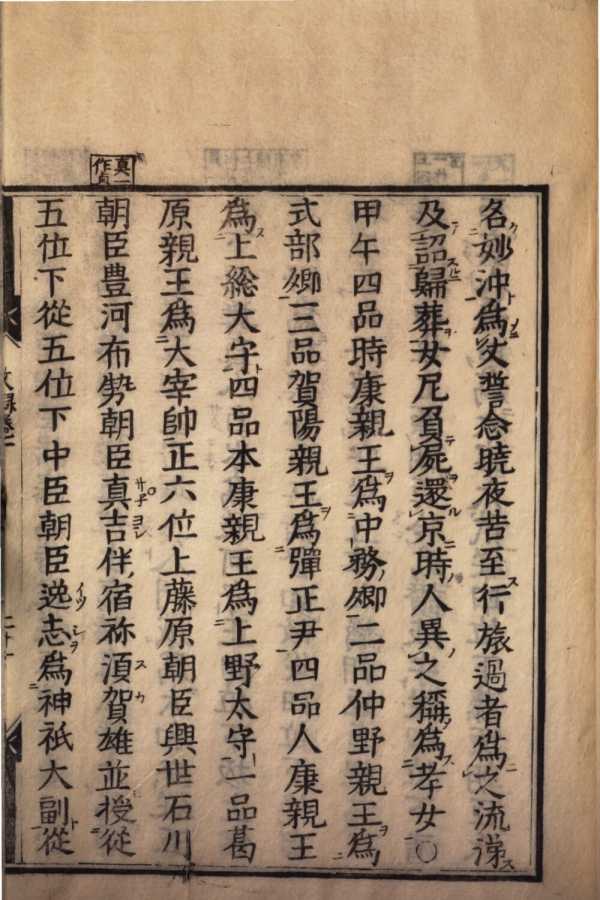 名妙沖爲父誓念曉夜苦至行旅過者爲之流涕
及詔歸葬女尼負屍還京時人異之稱爲孝女〇
甲午四品時康親王爲中務卿二品仲野親王爲
式部卿三品賀陽親王爲彈正尹四品人康親王
爲上総大守四品本康親王爲上野太守一品葛
原親王爲大宰帥正六位上藤原朝臣興世石川
朝臣豊河布勢朝臣真吉伴宿祢須賀雄並授從
五位下從五位下中臣朝臣逸志爲神祇大副從